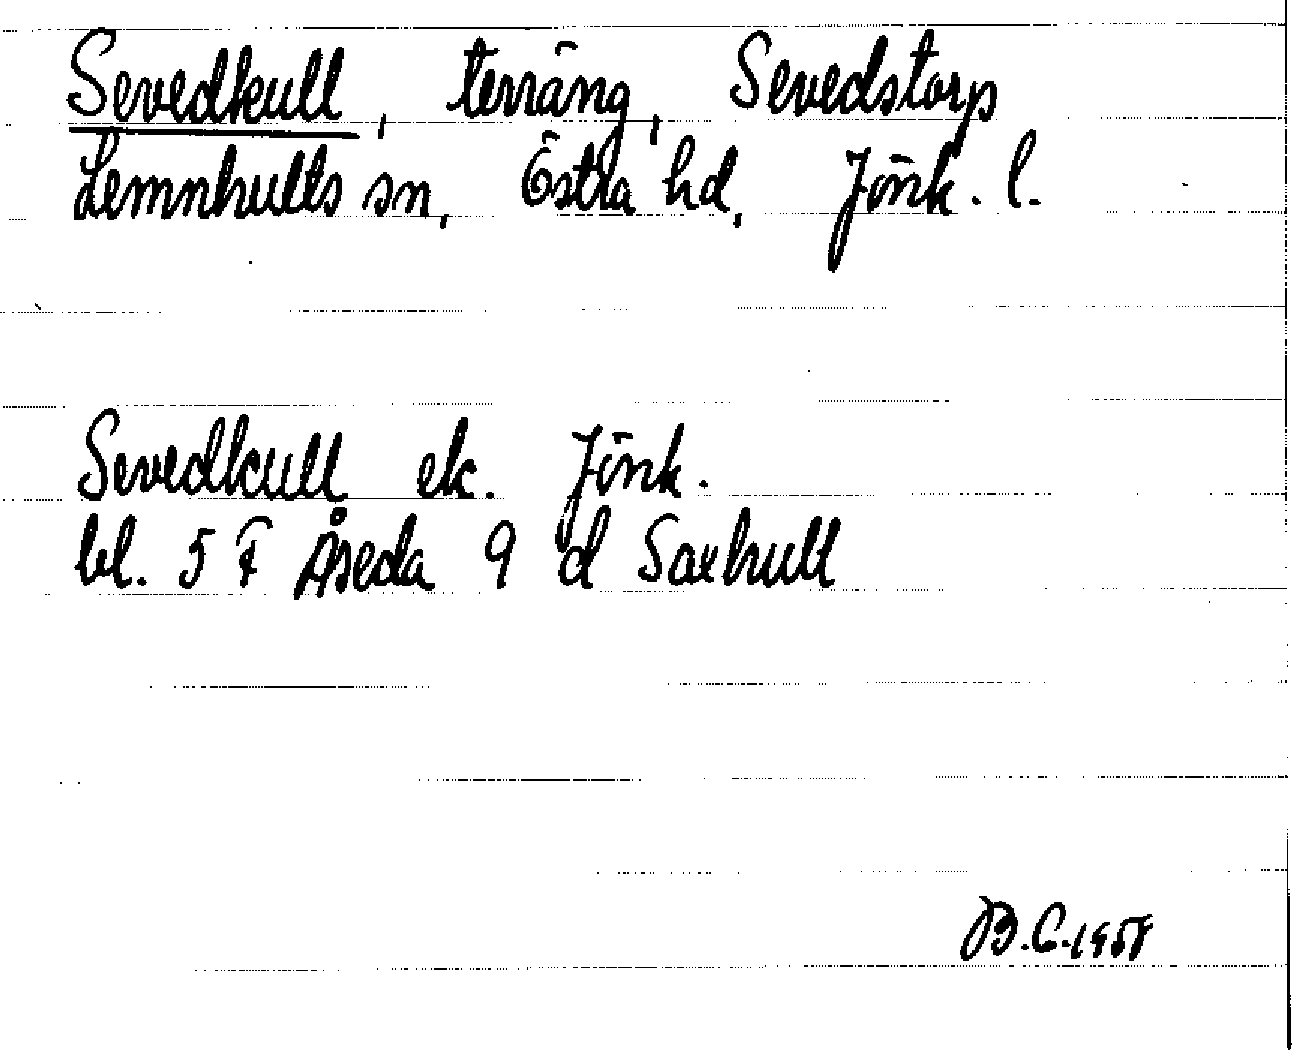 Sevedkull, terräng, Sevedstorp
Lemnhults sn, Östra hd, Jönk. l.
Sevedkull ek. Jönk.
bl. 5 F Åseda 9 d Saxhult
B.C. 1958